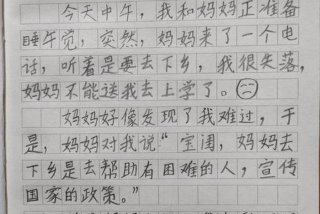 今天中午，我和妈妈正准备
睡午觉，突然，妈妈来了一个电
话，听着是要去下乡，我很失落，
妈妈不能送我去上学了。
妈妈好像发现了我难过，于
是，妈妈对我说“宝闺，妈妈去
下乡是去帮助有困难的人，宣传
国家的政策。”